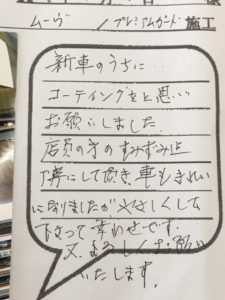 様
ムーヴ / プレミアムガード 施工
新車のうちに…
コーティングをと思い…
お願いしました
店員の方のすみずみ迄
丁寧にして頂き車もきれい
になりましたがやさしくして
下さって幸わせです。
又よろしくお願い
いたします。